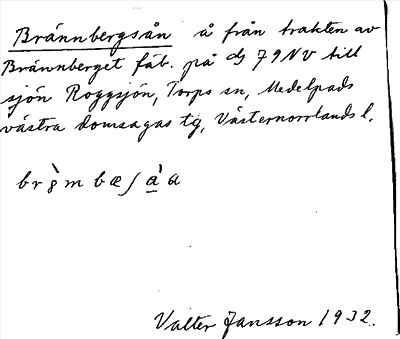 Brännbergsån å från trakten av
Brännberget fäb. på 79NV till
sjön Roggsjön, Torps sn, Medelpads
västra domsagas tg, Västernorrlands l.
Valter Jansson 1932.